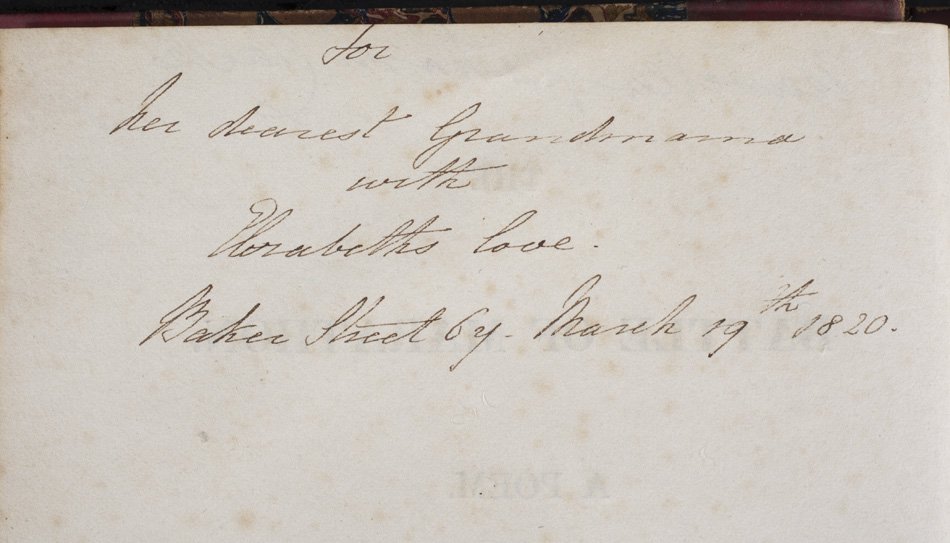 for
her dearest Grandmama
with
Elizabeths love.
Baker Street 64. March 19th 1820.
A POEM.